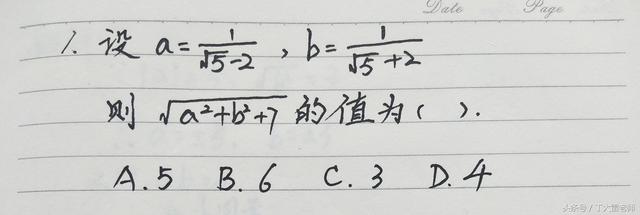 Date Page
1. 设 a=1/(√5-2) , b=1/(√5+2)
则 √(a²+b²+7) 的值为( ).
A.5 B.6 C.3 D.4